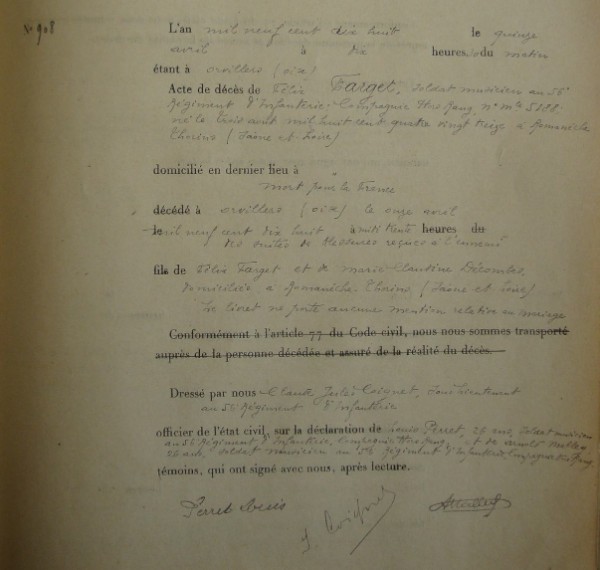 N° 908
L'an mil neuf cent dix huit le quinze
avril à dix heures du matin
étant à orvillers (oise)
Acte de décès de Félix Farget, soldat musicien au 56e
Régiment d'Infanterie. Compagnie Hrs Rang, n° mle 5188
né le trois aout mil huit cent quatre vingt treize à Romanèche
Thorins (Saône et Loire)
domicilié en dernier lieu à
mort pour la France
décédé à orvillers (oise) le onze avril
le mil neuf cent dix huit à heures du
des suites de blessures reçues à l'ennemi
fils de Félix Farget et de Marie Claudine Décombes
domiciliés à Romanèche Thorins (Saône et Loire)
Le livret ne porte aucune mention relative au mariage
Conformément à l'article 77 du Code civil, nous nous sommes transporté
auprès de la personne décédée et assuré de la réalité du décès.
Dressé par nous Claude Jules Coignet, Sous Lieutenant
au 56 Régiment d'Infanterie
officier de l'état civil, sur la déclaration de Louis Perret, 26 ans, soldat musicien
au 56 Régiment d'Infanterie, Compagnie Hors Rang, et de
26 ans, soldat musicien au 56 Régiment d'Infanterie, Compagnie Hrs Rang
témoins, qui ont signé avec nous, après lecture.
Perret Louis
J. Coignet